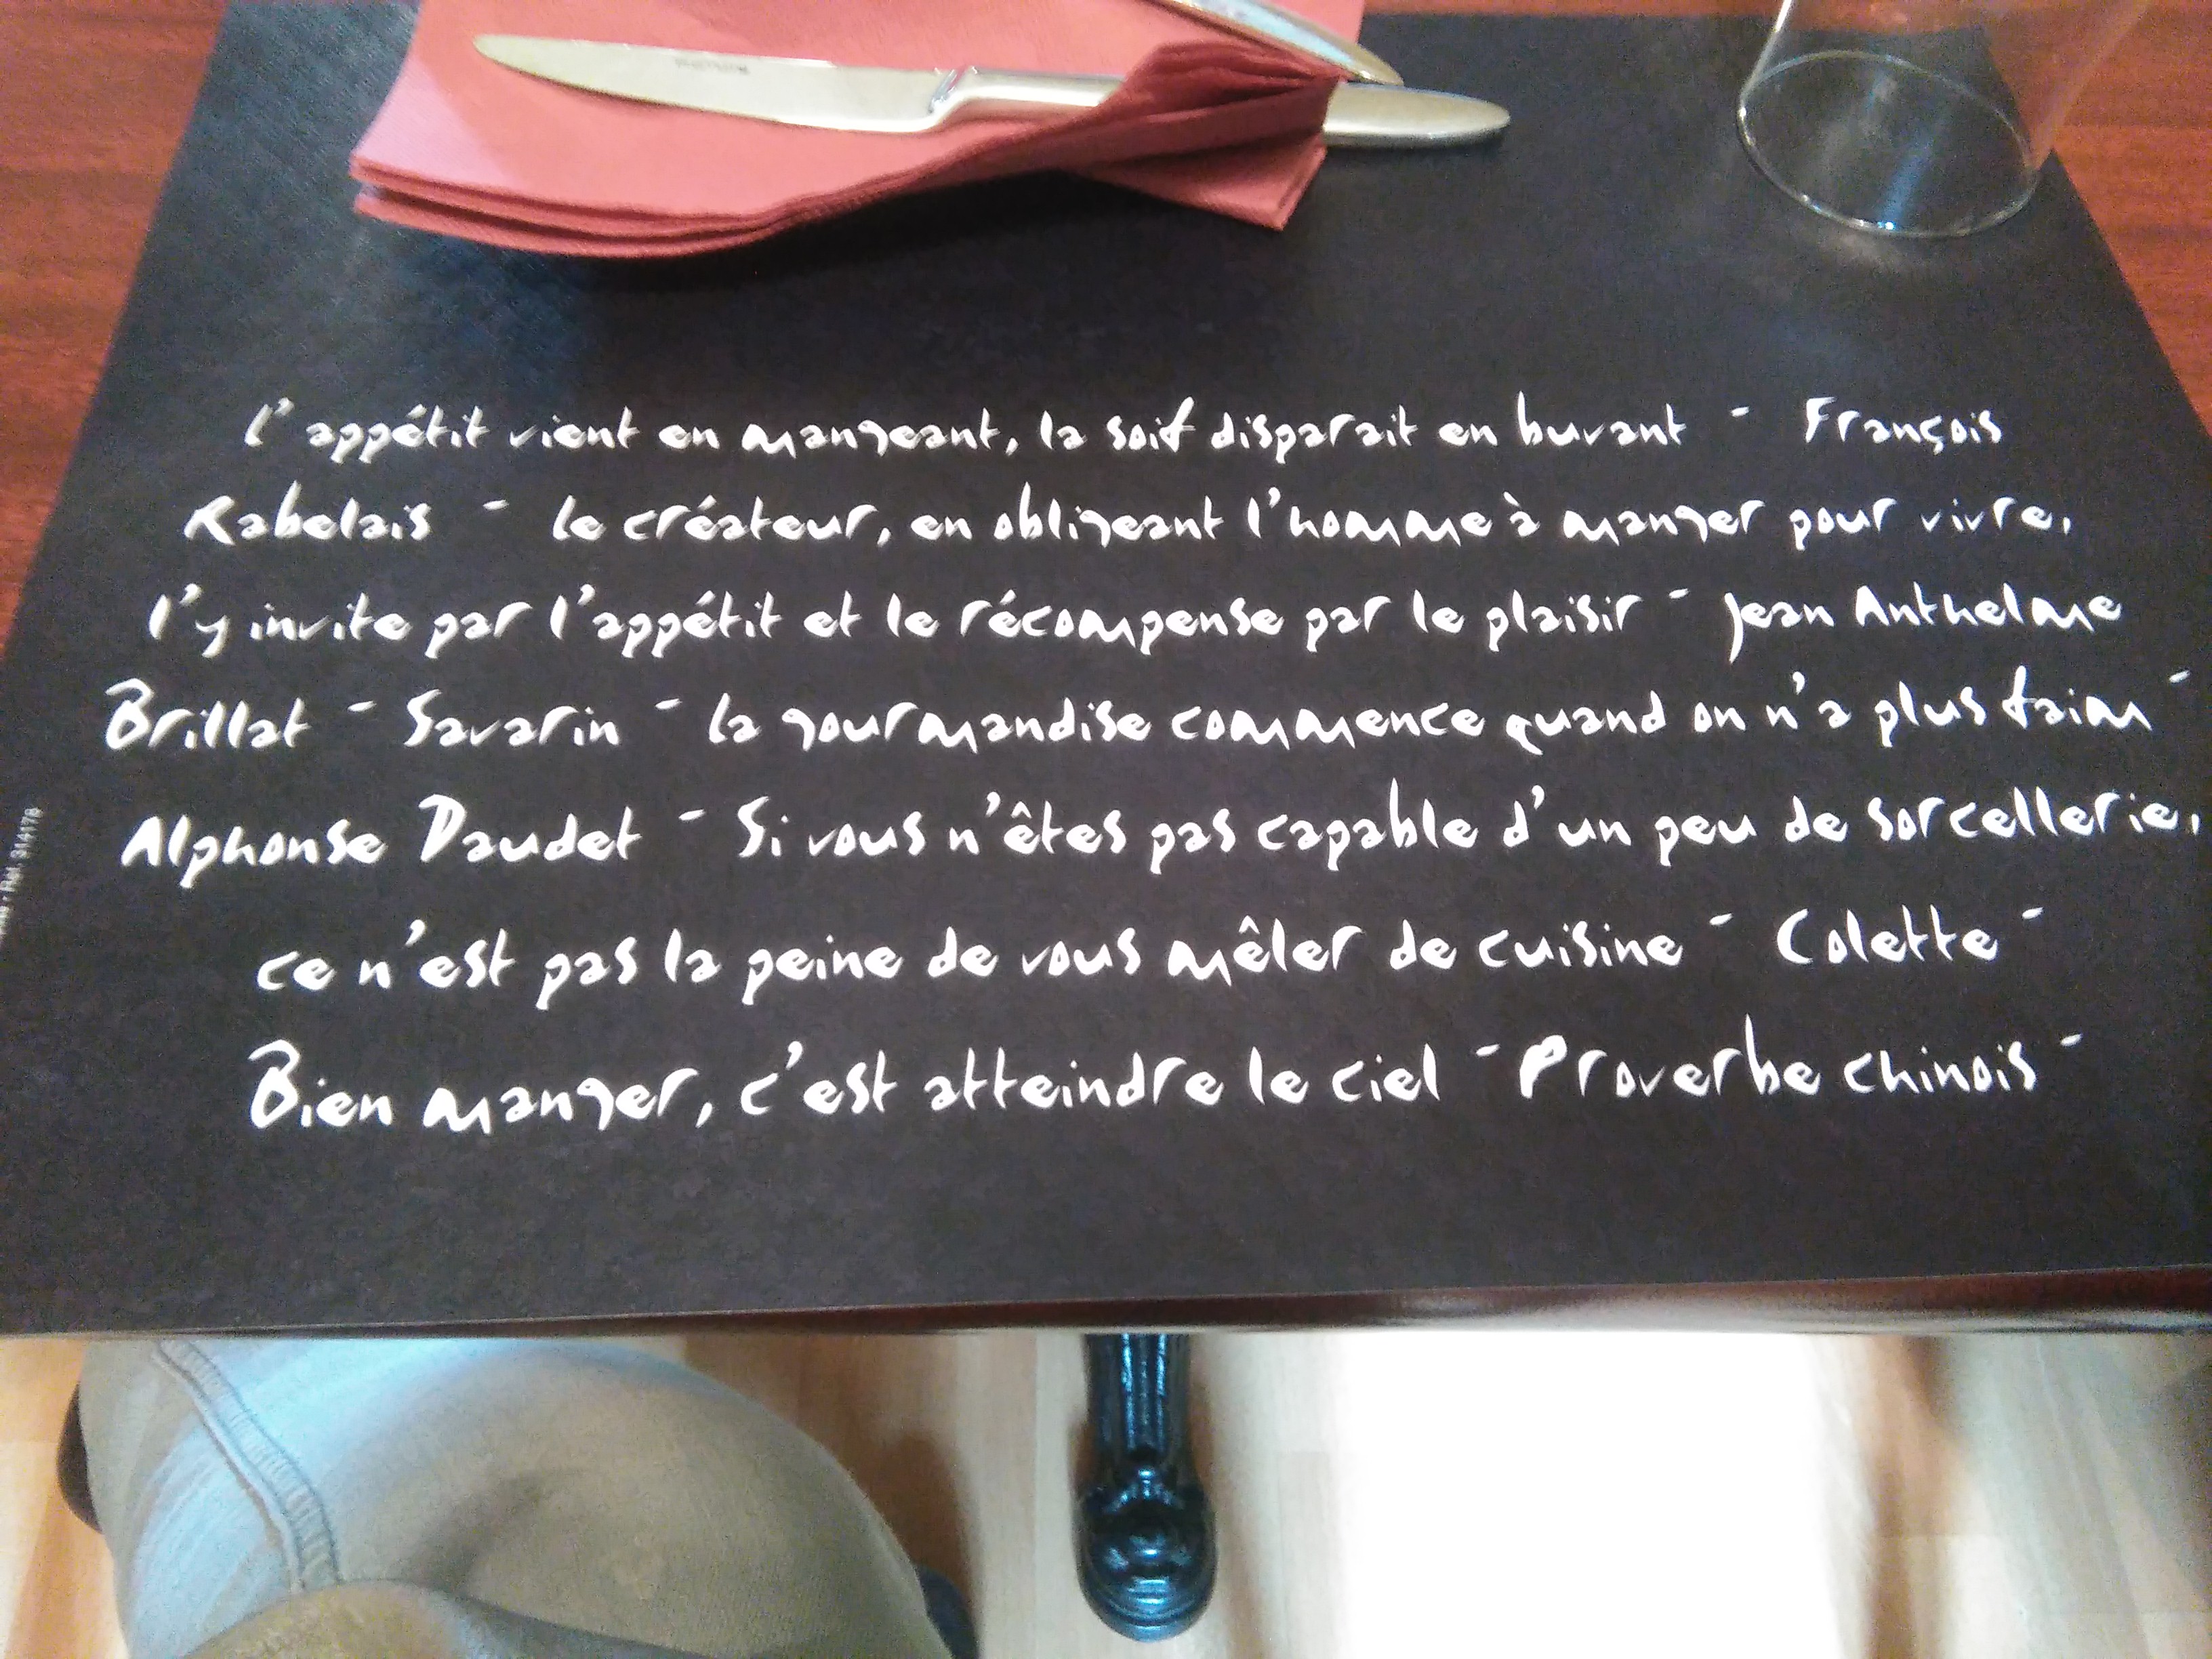 l'appétit vient en mangeant, la soif disparait en buvant - François
Rabelais - le créateur, en obligeant l'homme à manger pour vivre,
l'y invite par l'appétit et le récompense par le plaisir - Jean Anthelme
Brillat - Savarin - la gourmandise commence quand on n'a plus faim -
Alphonse Daudet - Si vous n'êtes pas capable d'un peu de sorcellerie,
ce n'est pas la peine de vous mêler de cuisine - Colette -
Bien manger, c'est atteindre le ciel - Proverbe chinois -
Ref. 314178